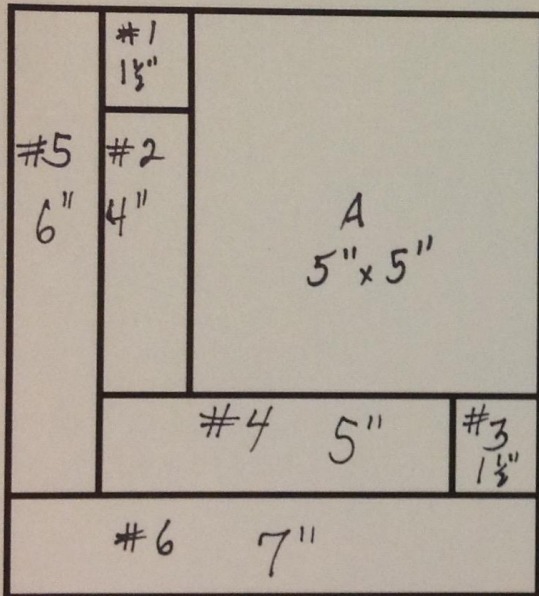 #1
1½"
#5
6"
#2
4"
A
5" x 5"
#4 5"
#3
1½"
#6 7"